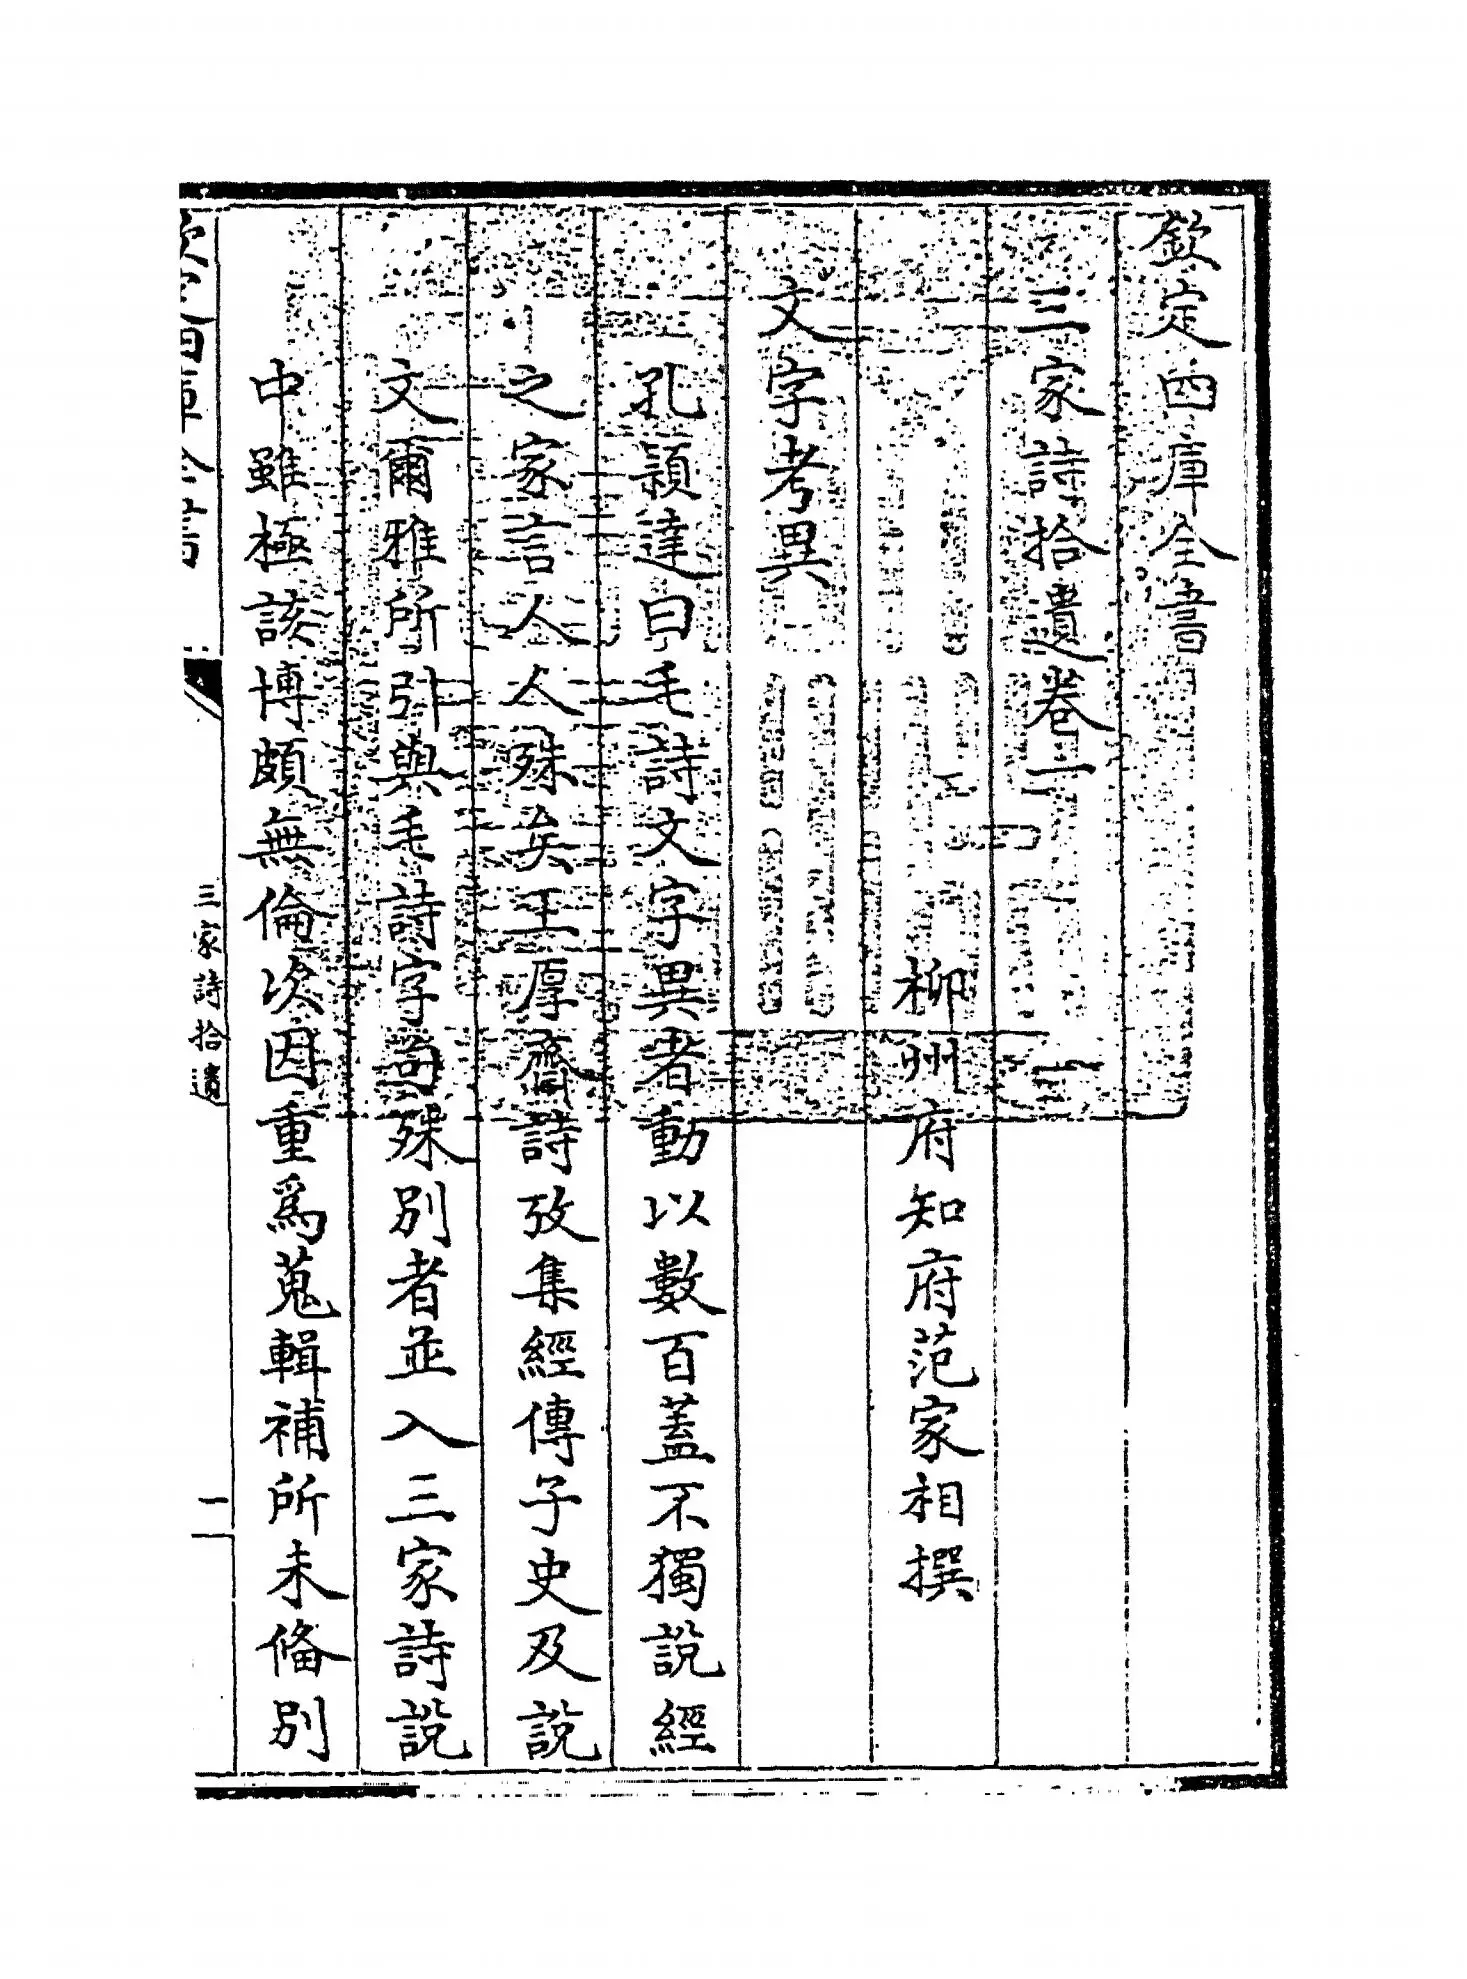 欽定四庫全書
三家詩拾遺卷一
柳州府知府范家相撰
文字考異
孔穎達曰毛詩文字異者動以數百蓋不獨說經
之家言人人殊矣王厚齋詩攷集經傳子史及說
文爾雅所引與毛詩字句殊別者並入三家詩說
中雖極該博頗無倫次因重爲蒐輯補所未備別
欽定四庫全書
三家詩拾遺
一